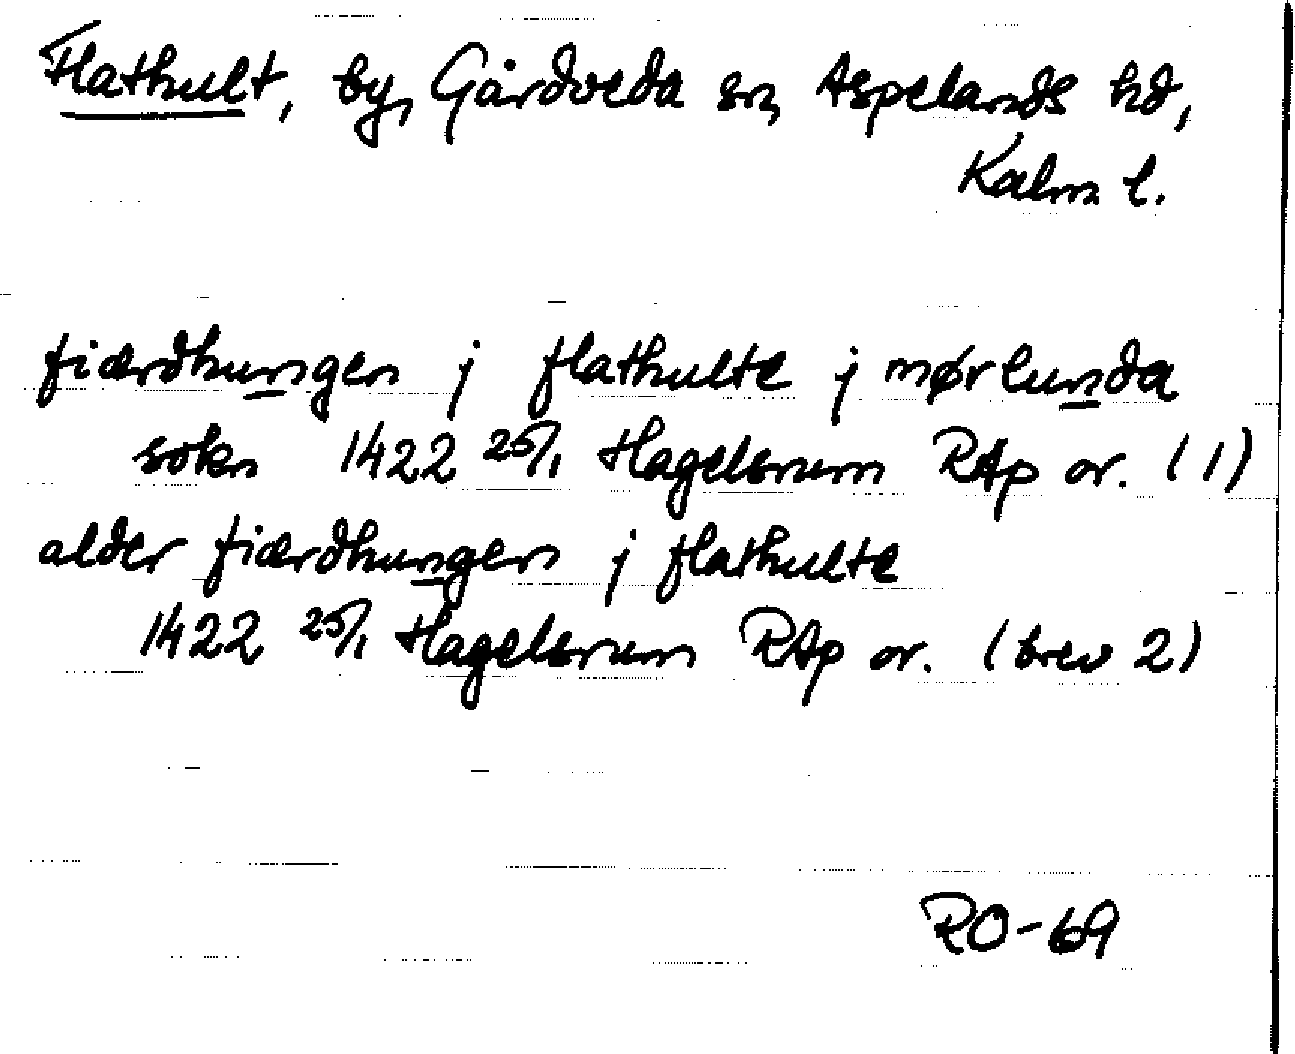 Flathult, by, Gårdveda sn, Aspelands hd,
Kalm l.
fiærdhungen j flathulte j mørlunda
sokn 1422 25/1 Hagelsrum RAp or. (1)
alder fiærdhungen j flathulte
1422 25/1 Hagelsrum RAp or. (brev 2)
RO-69